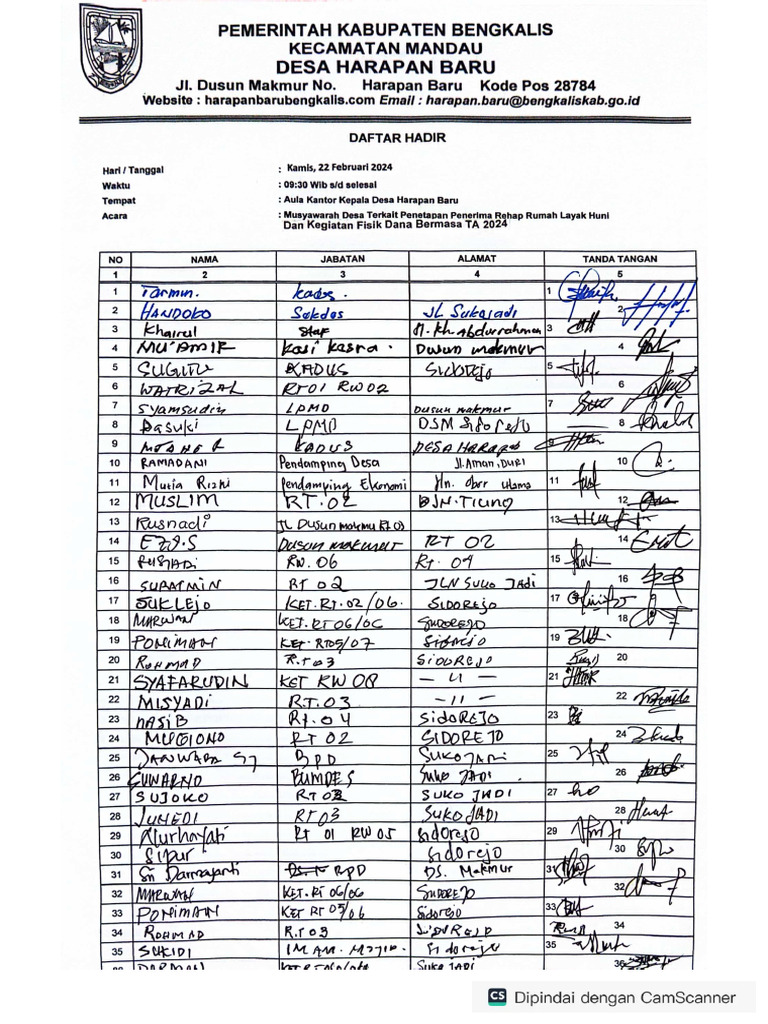 PEMERINTAH KABUPATEN BENGKALIS
KECAMATAN MANDAU
DESA HARAPAN BARU
Jl. Dusun Makmur No. Harapan Baru Kode Pos 28784
Website : harapanbarubengkalis.com Email : harapan.baru@bengkaliskab.go.id
DAFTAR HADIR
Hari / Tanggal : Kamis, 22 Februari 2024
Waktu : 09:30 Wib s/d selesai
Tempat : Aula Kantor Kepala Desa Harapan Baru
Acara : Musyawarah Desa Terkait Penetapan Penerima Rehap Rumah Layak Huni
Dan Kegiatan Fisik Dana Bermasa TA 2024
NO NAMA JABATAN ALAMAT TANDA TANGAN
1 2 3 4 5
1 Tarmin. kades. 1
2 HANDOKO Sekdes JL Sukajadi 2
3 Khairul Staf Jl. Kh Abdurrahman 3
4 MU'AMIR Kasi Kesra. Dusun makmur 4
5 SUGITO KADUS SIDOREJO 5
6 WATRIZAL RT01 RW02 6
7 Syamsudin LPMD Dusun makmur 7
8 Basuki LPMD DSM Sidorejo 8
9 KADUS DESA HARAPAN 9
10 RAMADANI Pendamping Desa Jl.Aman, DURI 10
11 Mutia Rizki Pendamping Ekonomi Jln. Obor Utama 11
12 MUSLIM RT.02 12
13 Rusnadi JL Dusun makmur 13
14 Dusun makmur RT 02 14
15 RW. 06 RT. 04 15
16 SUPATMIN RT 02 JLN SUKO JADI 16
17 SUKLEJO KET.RT.02/06. SIDOREJO 17
18 MARWAN KET.RT06/06 SIDOREJO 18
19 PONIMAN KET. RT05/07 Sidorejo 19
20 ROHMAD R.T03 SIDOREJO 20
21 SYAFARUDIN KET RW 08 — 11 — 21
22 MISYADI RT.03 — 11 — 22
23 NASIB RT.04 SIDOREJO 23
24 MUGIONO RT 02 SIDOREJO 24
25 BPD SUKOJADI 25
26 SUWARNO BUMDES SUKO JADI 26
27 SUJOKO RT 02 SUKO JADI 27
28 JUNEDI RT03 SUKO JADI 28
29 Nurhayati RT 01 RW 05 Sidorejo 29
30 Sipur Sidorejo 30
31 Sri Darmayanti BPD DS. Makmur 31
32 MARWAN KET.RT 06/06 SIDOREJO 32
33 PONIMAN KET RT 05/06 Sidorejo 33
34 ROHMAD R.T 03 SIDOREJO 34
35 IMAM. Sidorejo 35
DARMAN SUKO JADI 36
CS Dipindai dengan CamScanner